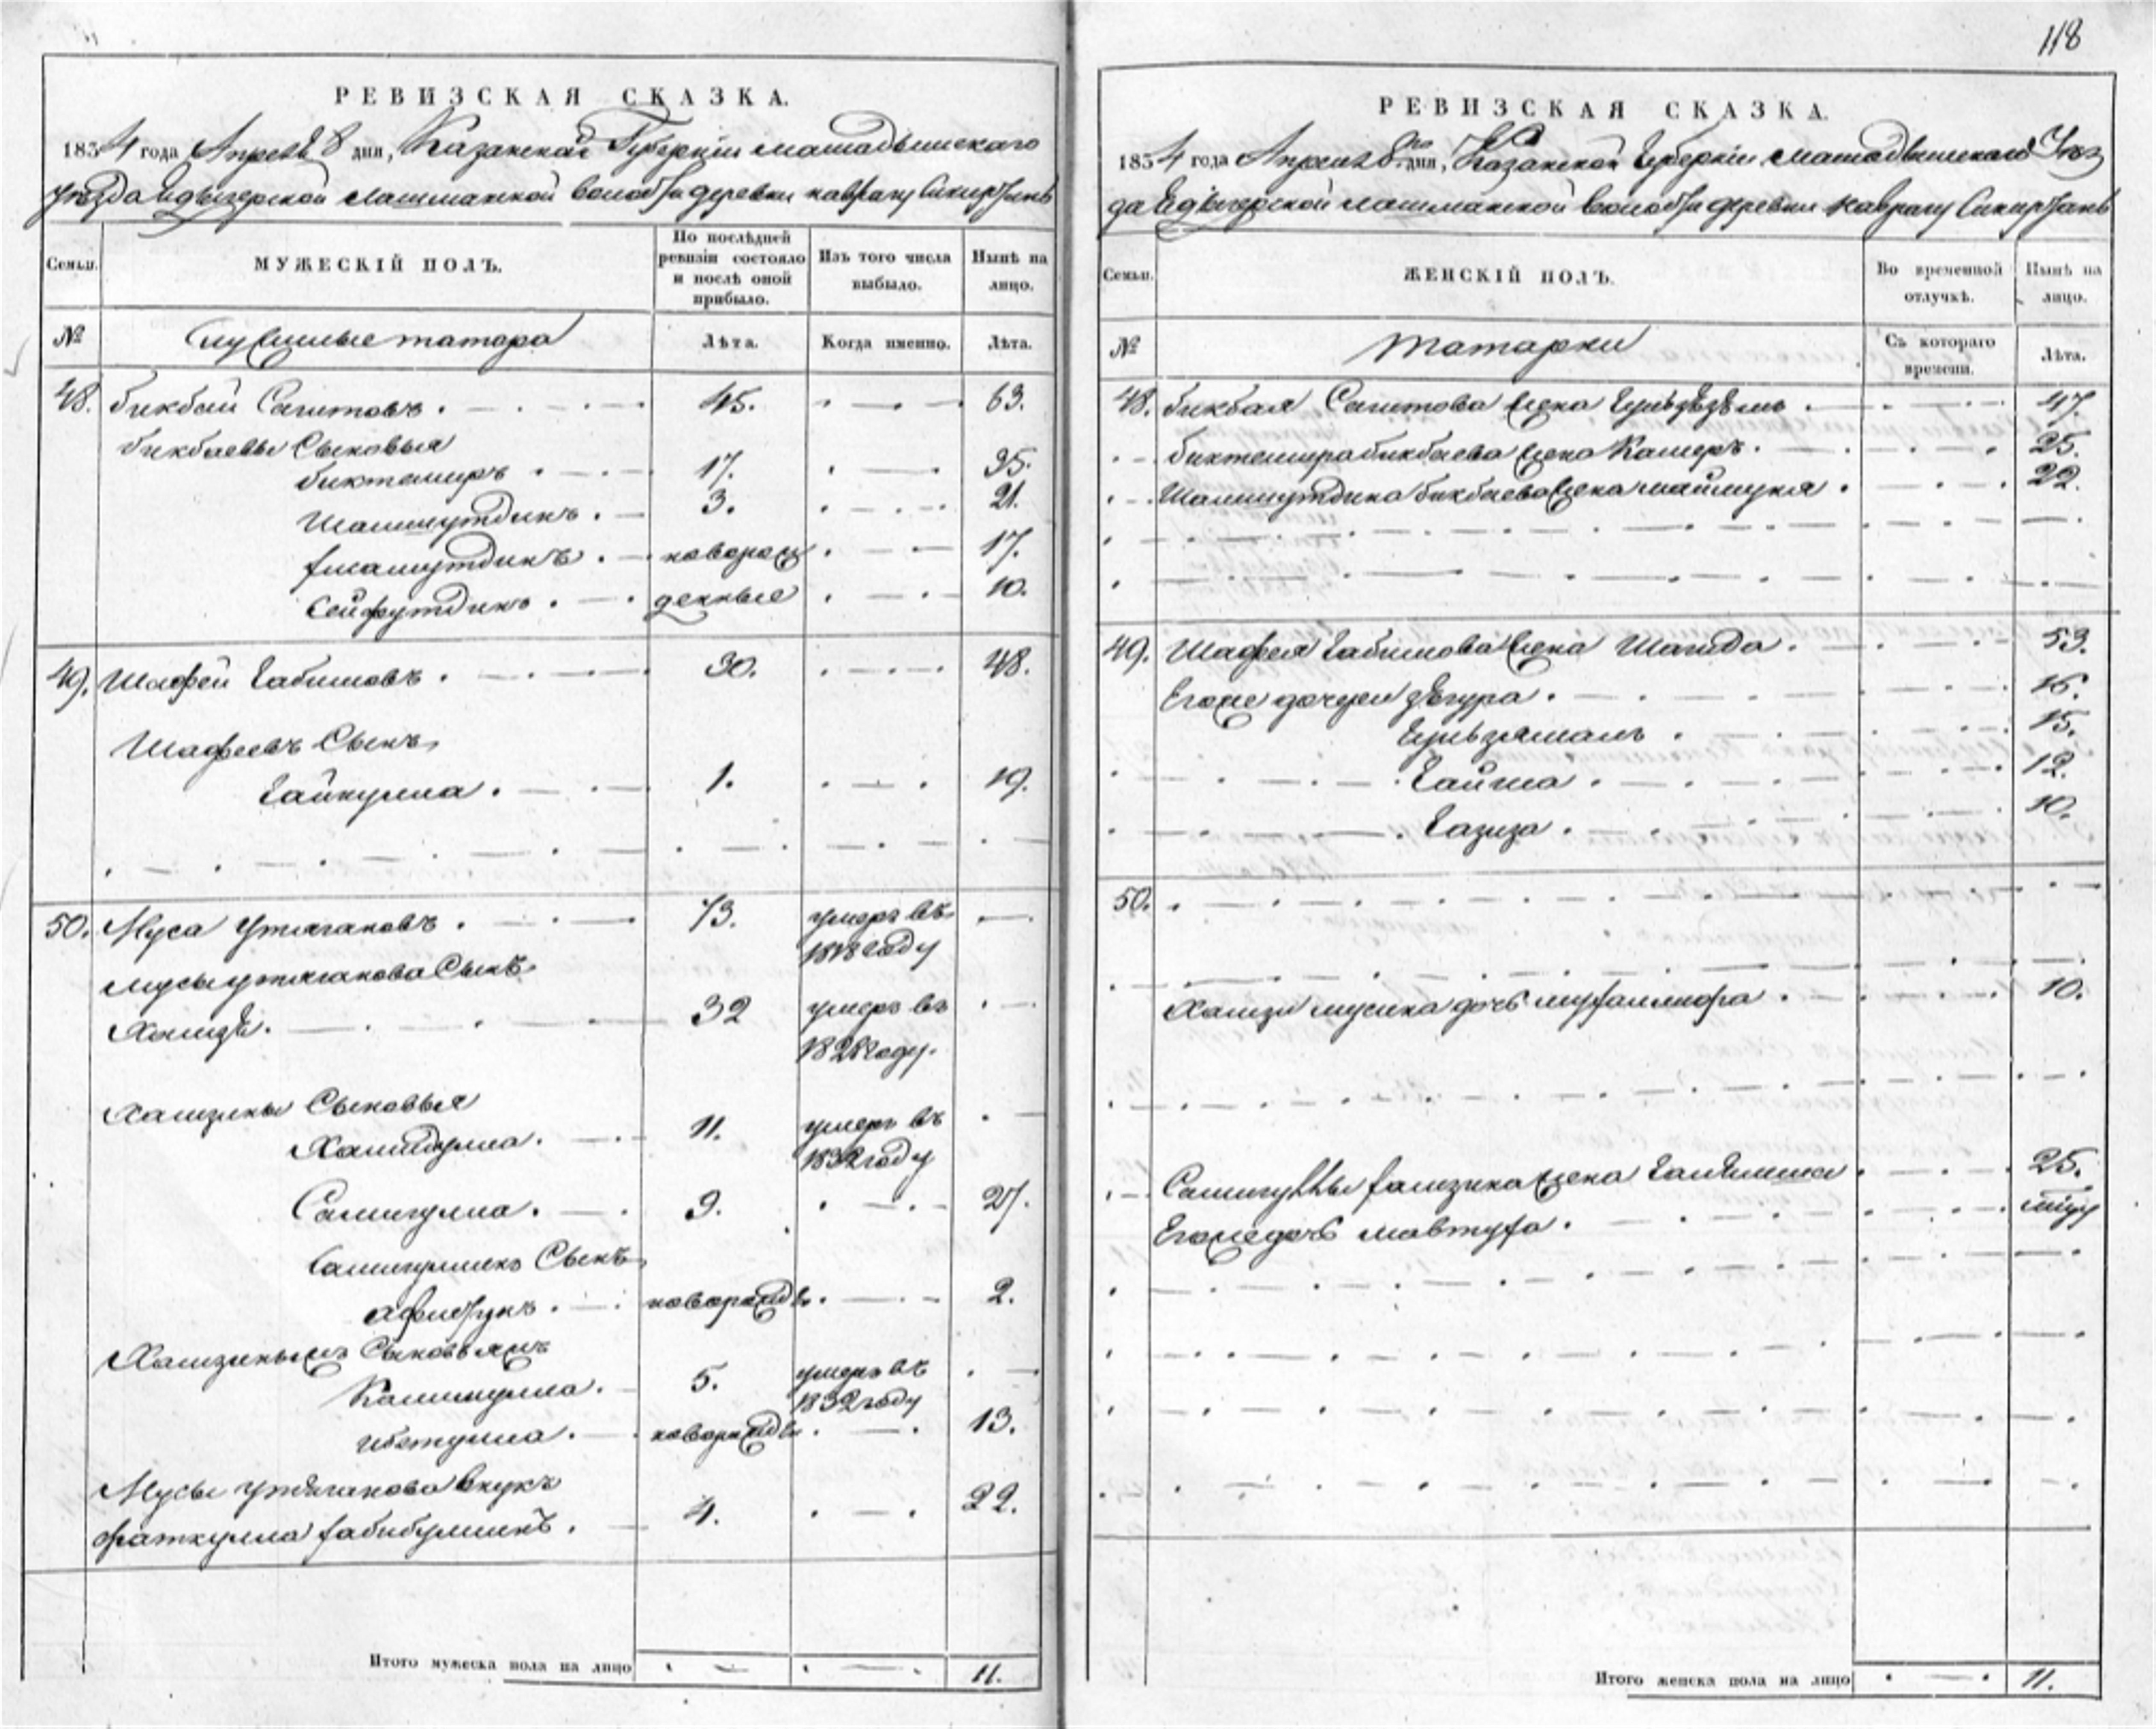 РЕВИЗСКАЯ СКАЗКА.
1834 года Апреля 8 дня, Казанской Губернiи мамадышскаго
уѣзда лашманской волости деревни
Семьи.
МУЖЕСКIЙ ПОЛЪ.
По послѣдней ревизiи состояло и послѣ оной прибыло.
Изъ того числа выбыло.
Нынѣ на лицо.
№
служилые татара
Лѣта.
Когда именно.
Лѣта.
48. бикбай Сагитовъ 45. 63.
бикбаевы Сыновья
биктемиръ 17. 35.
Шамшутдинъ 3. 21.
новорож 17.
Сейфутдинъ денные 10.
49. Шафей Габитовъ 30. 48.
Шафеевъ Сынъ
Гайнулла 1. 19.
50. Муса Утягановъ 73. умеръ въ
1818 году
мусы утяганова Сынъ
Хамзѣ 32 умеръ въ
1828 году
Хамзины Сыновья
Хамидулла 11. умеръ въ
1832 году
Самигулла 9. 27.
Самигуллинъ Сынъ
новорожд 2.
Хамзиныхъ Сыновьяхъ
Калимулла 5. умеръ въ
1832 году
новорожд 13.
Мусы утяганова внукъ
фаткулла хабибуллинъ 4. 22.
Итого мужеска пола на лицо 11.
118
РЕВИЗСКАЯ СКАЗКА.
1834 года Апреля 8го дня, Казанской Губернiи мамадышскаго Уѣз
да лашманской волости деревни
Семьи.
ЖЕНСКIЙ ПОЛЪ.
Во временной отлучкѣ.
Нынѣ на лицо.
№
татарки
Съ котораго времени.
Лѣта.
48. бикбая Сагитова жена 47.
биктемира бикбаева жена Камеръ 25.
Шамшутдина бикбаева жена 22.
49. Шафея Габитова жена Шагида 53.
Егоже дочери зѣгура 16.
Гульзямалъ 15.
Гайша 12.
Газиза 10.
50.
Хамзи мусина дочь 10.
Самигуллы хамзина жена 25.
Егоже дочь
Итого женска пола на лицо 11.